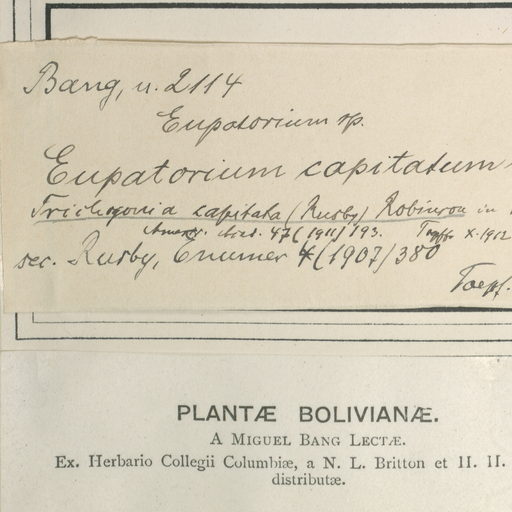 Bang, n. 2114
Eupatorium sp.
Eupatorium capitatum
Trichogonia capitata (Rusby) Robinson in
Acad. 47 (1911) 193. Toepff. X. 1912
sec. Rusby, Enumer 4 (1907) 380
Toepf.
PLANTÆ BOLIVIANÆ.
A MIGUEL BANG LECTÆ.
Ex. Herbario Collegii Columbiæ, a N. L. Britton et H. H.
distributæ.